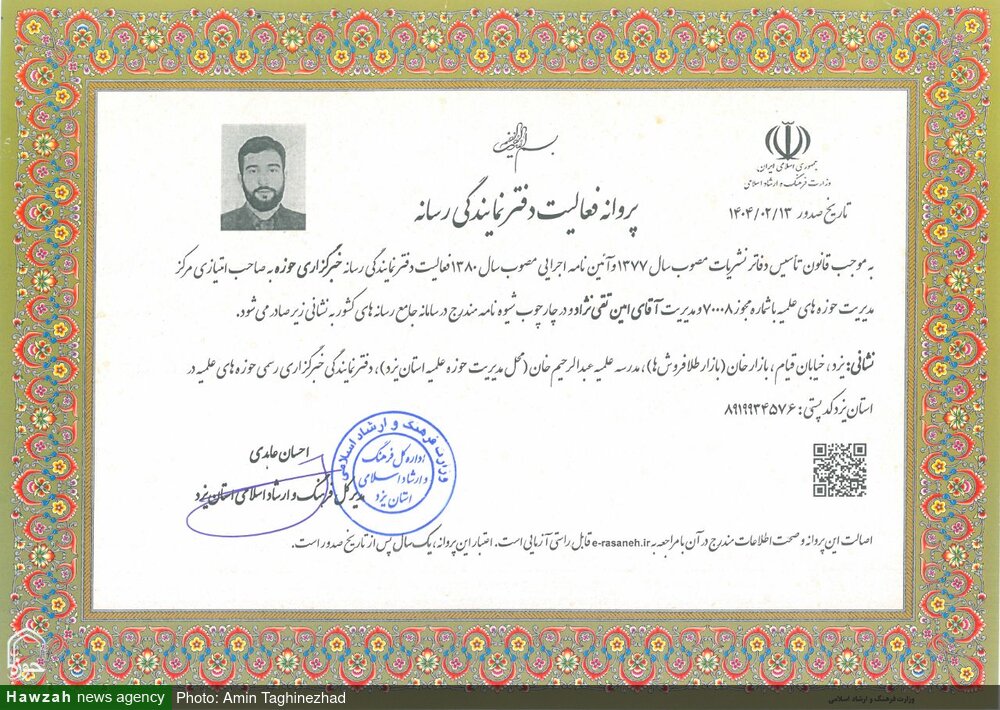 بسم الله الرحمن الرحیم
جمهوری اسلامی ایران
وزارت فرهنگ و ارشاد اسلامی
تاریخ صدور ۱۴۰۴/۰۲/۱۳
پروانه فعالیت دفتر نمایندگی رسانه
به موجب قانون تأسیس دفاتر نشریات مصوب سال ۱۳۷۷ و آئین نامه اجرایی مصوب سال ۱۳۸۰ فعالیت دفتر نمایندگی رسانه خبرگزاری حوزه به صاحب امتیازی مرکز
مدیریت حوزه های علمیه با شماره مجوز ۷۰۰۰۸ و مدیریت آقای امین تقی نژاد و در چارچوب شیوه نامه مندرج در سامانه جامع رسانه های کشور به نشانی زیر صادر می شود.
نشانی: یزد، خیابان قیام، بازار خان (بازار طلافروش ها)، مدرسه علمیه عبدالرحیم خان (محل مدیریت حوزه علمیه استان یزد)، دفتر نمایندگی خبرگزاری رسمی حوزه های علمیه در
استان یزد کد پستی: ۸۹۱۹۹۳۴۵۷۶
احسان عابدی
مدیر کل فرهنگ و ارشاد اسلامی استان یزد
وزارت فرهنگ و ارشاد اسلامی
اداره کل فرهنگ
و ارشاد اسلامی
استان یزد
اصالت این پروانه و صحت اطلاعات مندرج در آن با مراجعه به e-rasaneh.ir قابل راستی آزمایی است. اعتبار این پروانه، یک سال پس از تاریخ صدور است.
حوزه
Hawzah news agency Photo: Amin Taghinezhad
وزارت فرهنگ و ارشاد اسلامی